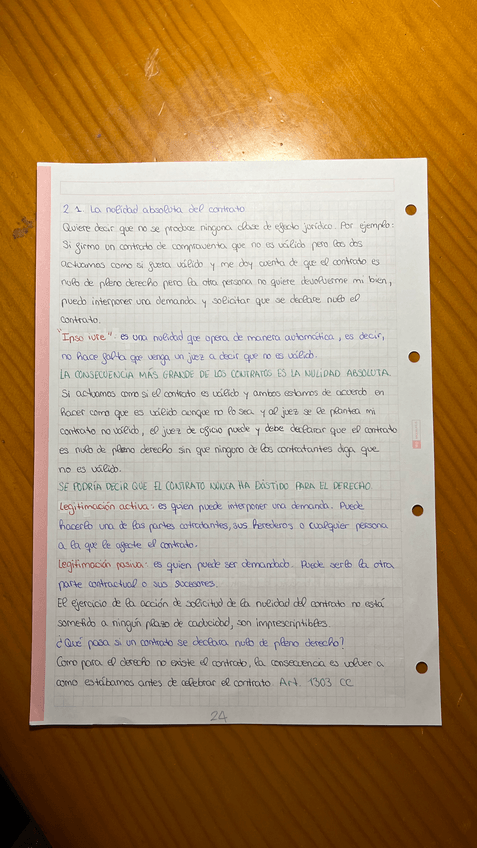 2.1. La nulidad absoluta del contrato
Quiere decir que no se produce ninguna clase de efecto jurídico. Por ejemplo:
Si firmo un contrato de compraventa que no es válido pero los dos
actuamos como si fuera válido y me doy cuenta de que el contrato es
nulo de pleno derecho pero la otra persona no quiere devolverme mi bien,
puedo interponer una demanda y solicitar que se declare nulo el
contrato.
"Ipso iure": es una nulidad que opera de manera automática, es decir,
no hace falta que venga un juez a decir que no es válido.
LA CONSECUENCIA MÁS GRANDE DE LOS CONTRATOS ES LA NULIDAD ABSOLUTA.
Si actuamos como si el contrato es válido y ambos estamos de acuerdo en
hacer como que es válido aunque no lo sea, y al juez se le plantea mi
contrato no válido, el juez de oficio puede y debe declarar que el contrato
es nulo de pleno derecho sin que ninguno de los contratantes diga que
no es válido.
SE PODRÍA DECIR QUE EL CONTRATO NUNCA HA EXISTIDO PARA EL DERECHO.
Legitimación activa: es quien puede interponer una demanda. Puede
hacerlo una de las partes cotratantes, sus herederos o cualquier persona
a la que le afecte el contrato.
Legitimación pasiva: es quien puede ser demandado. Puede serlo la otra
parte contractual o sus sucesores.
El ejercicio de la acción de solicitud de la nulidad del contrato no está
sometido a ningún plazo de caducidad, son imprescriptibles.
¿Qué pasa si un contrato se declara nulo de pleno derecho?
Como para el derecho no existe el contrato, la consecuencia es volver a
como estábamos antes de celebrar el contrato. Art. 1303 CC
24